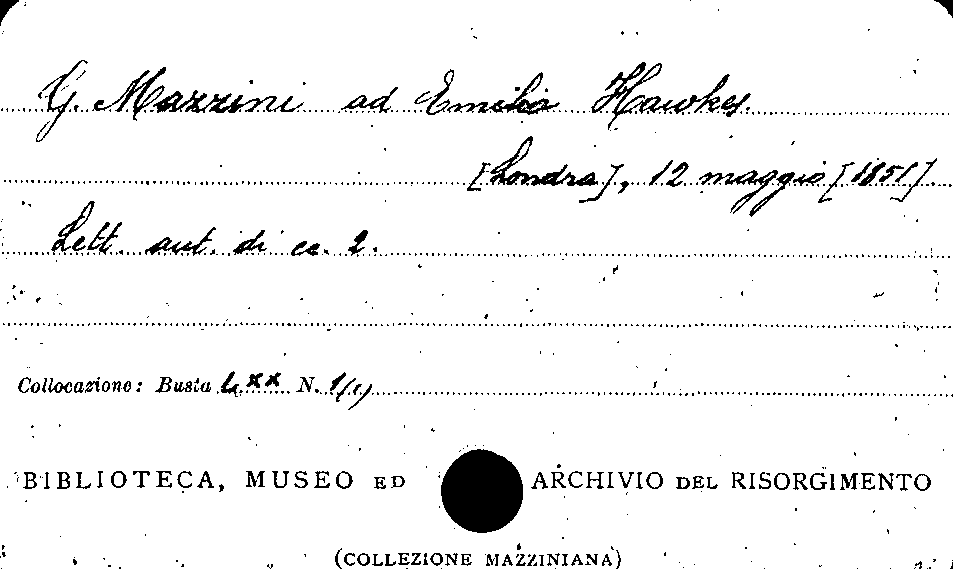 G. Mazzini ad Emilia Hawkes.
[Londra], 12 maggio [1851].
Lett. aut. di cc. 2.
Collocazione: Busta LXX N. 1/(1)
BIBLIOTECA, MUSEO ED ARCHIVIO DEL RISORGIMENTO
(COLLEZIONE MAZZINIANA)